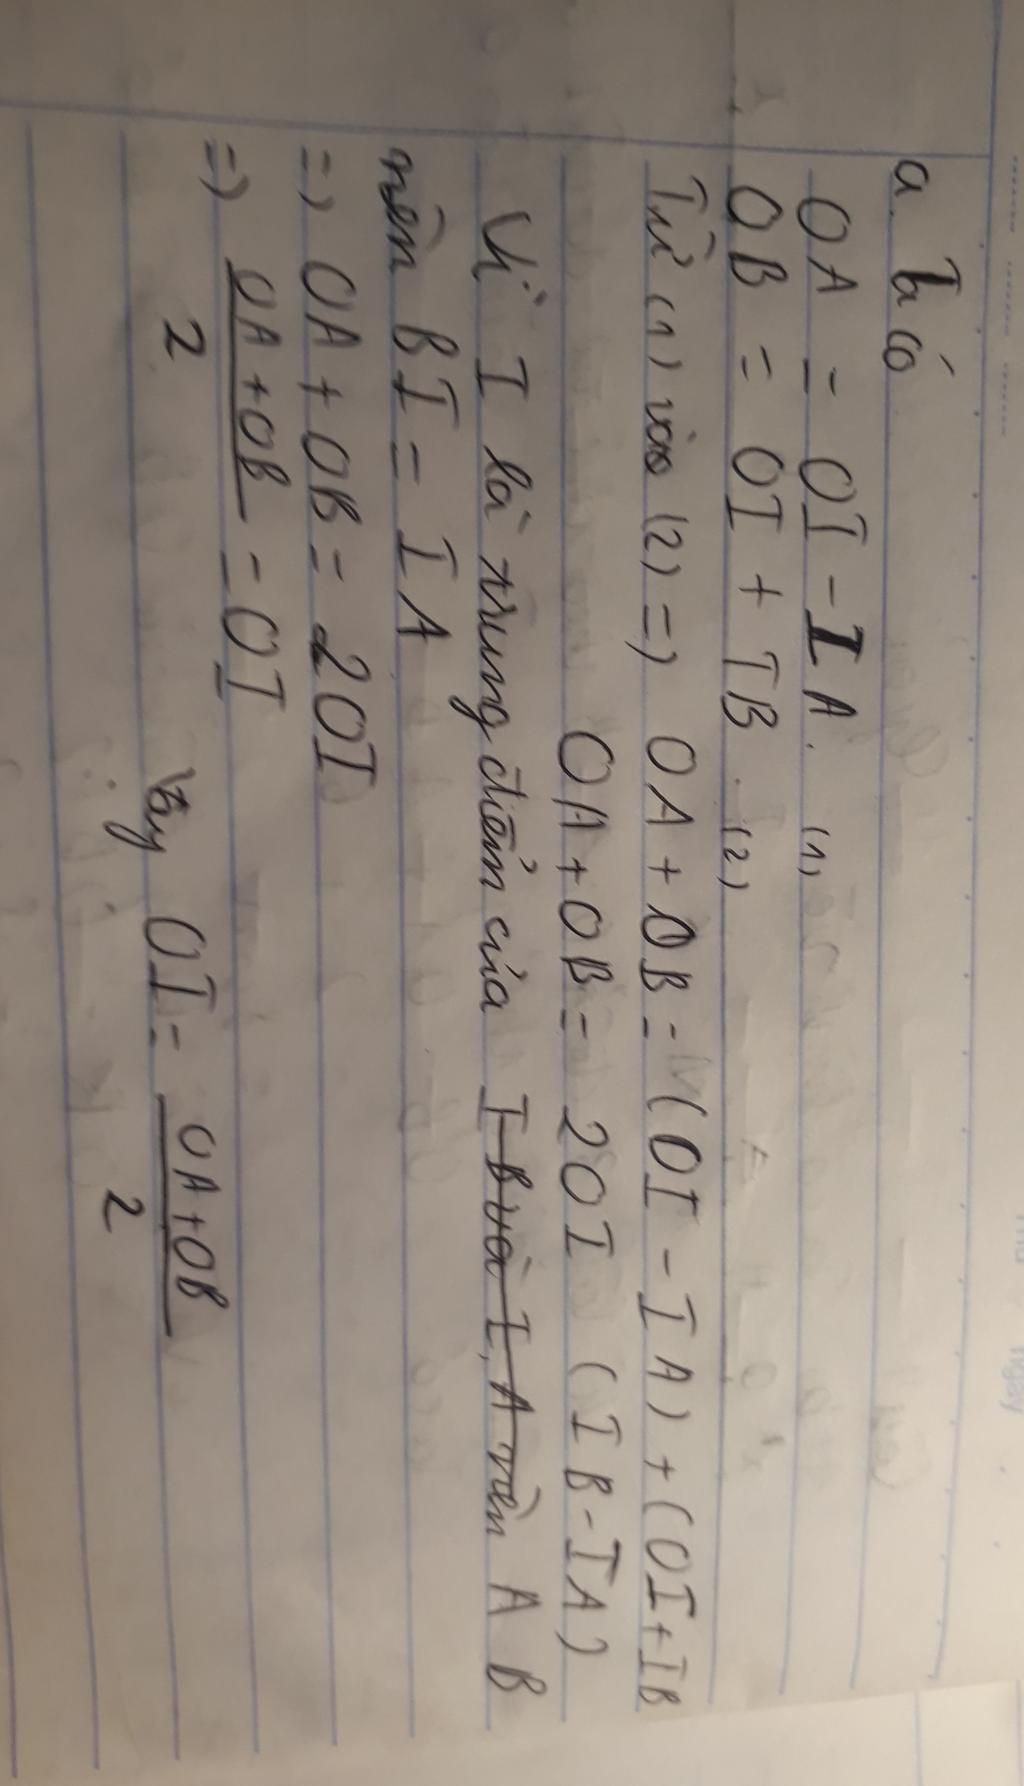 a. Ta có
OA = OI - IA. (1)
OB = OI + IB. (2)
Từ (1) và (2) =) OA + OB = (OI - IA) + (OI + IB
OA + OB = 2OI (IB - IA)
Vì I là trung điểm của I B và I, A nên A B
nên BI = IA
=) OA + OB = 2OI
=) OA + OB / 2 = OI
Vậy OI = OA + OB / 2